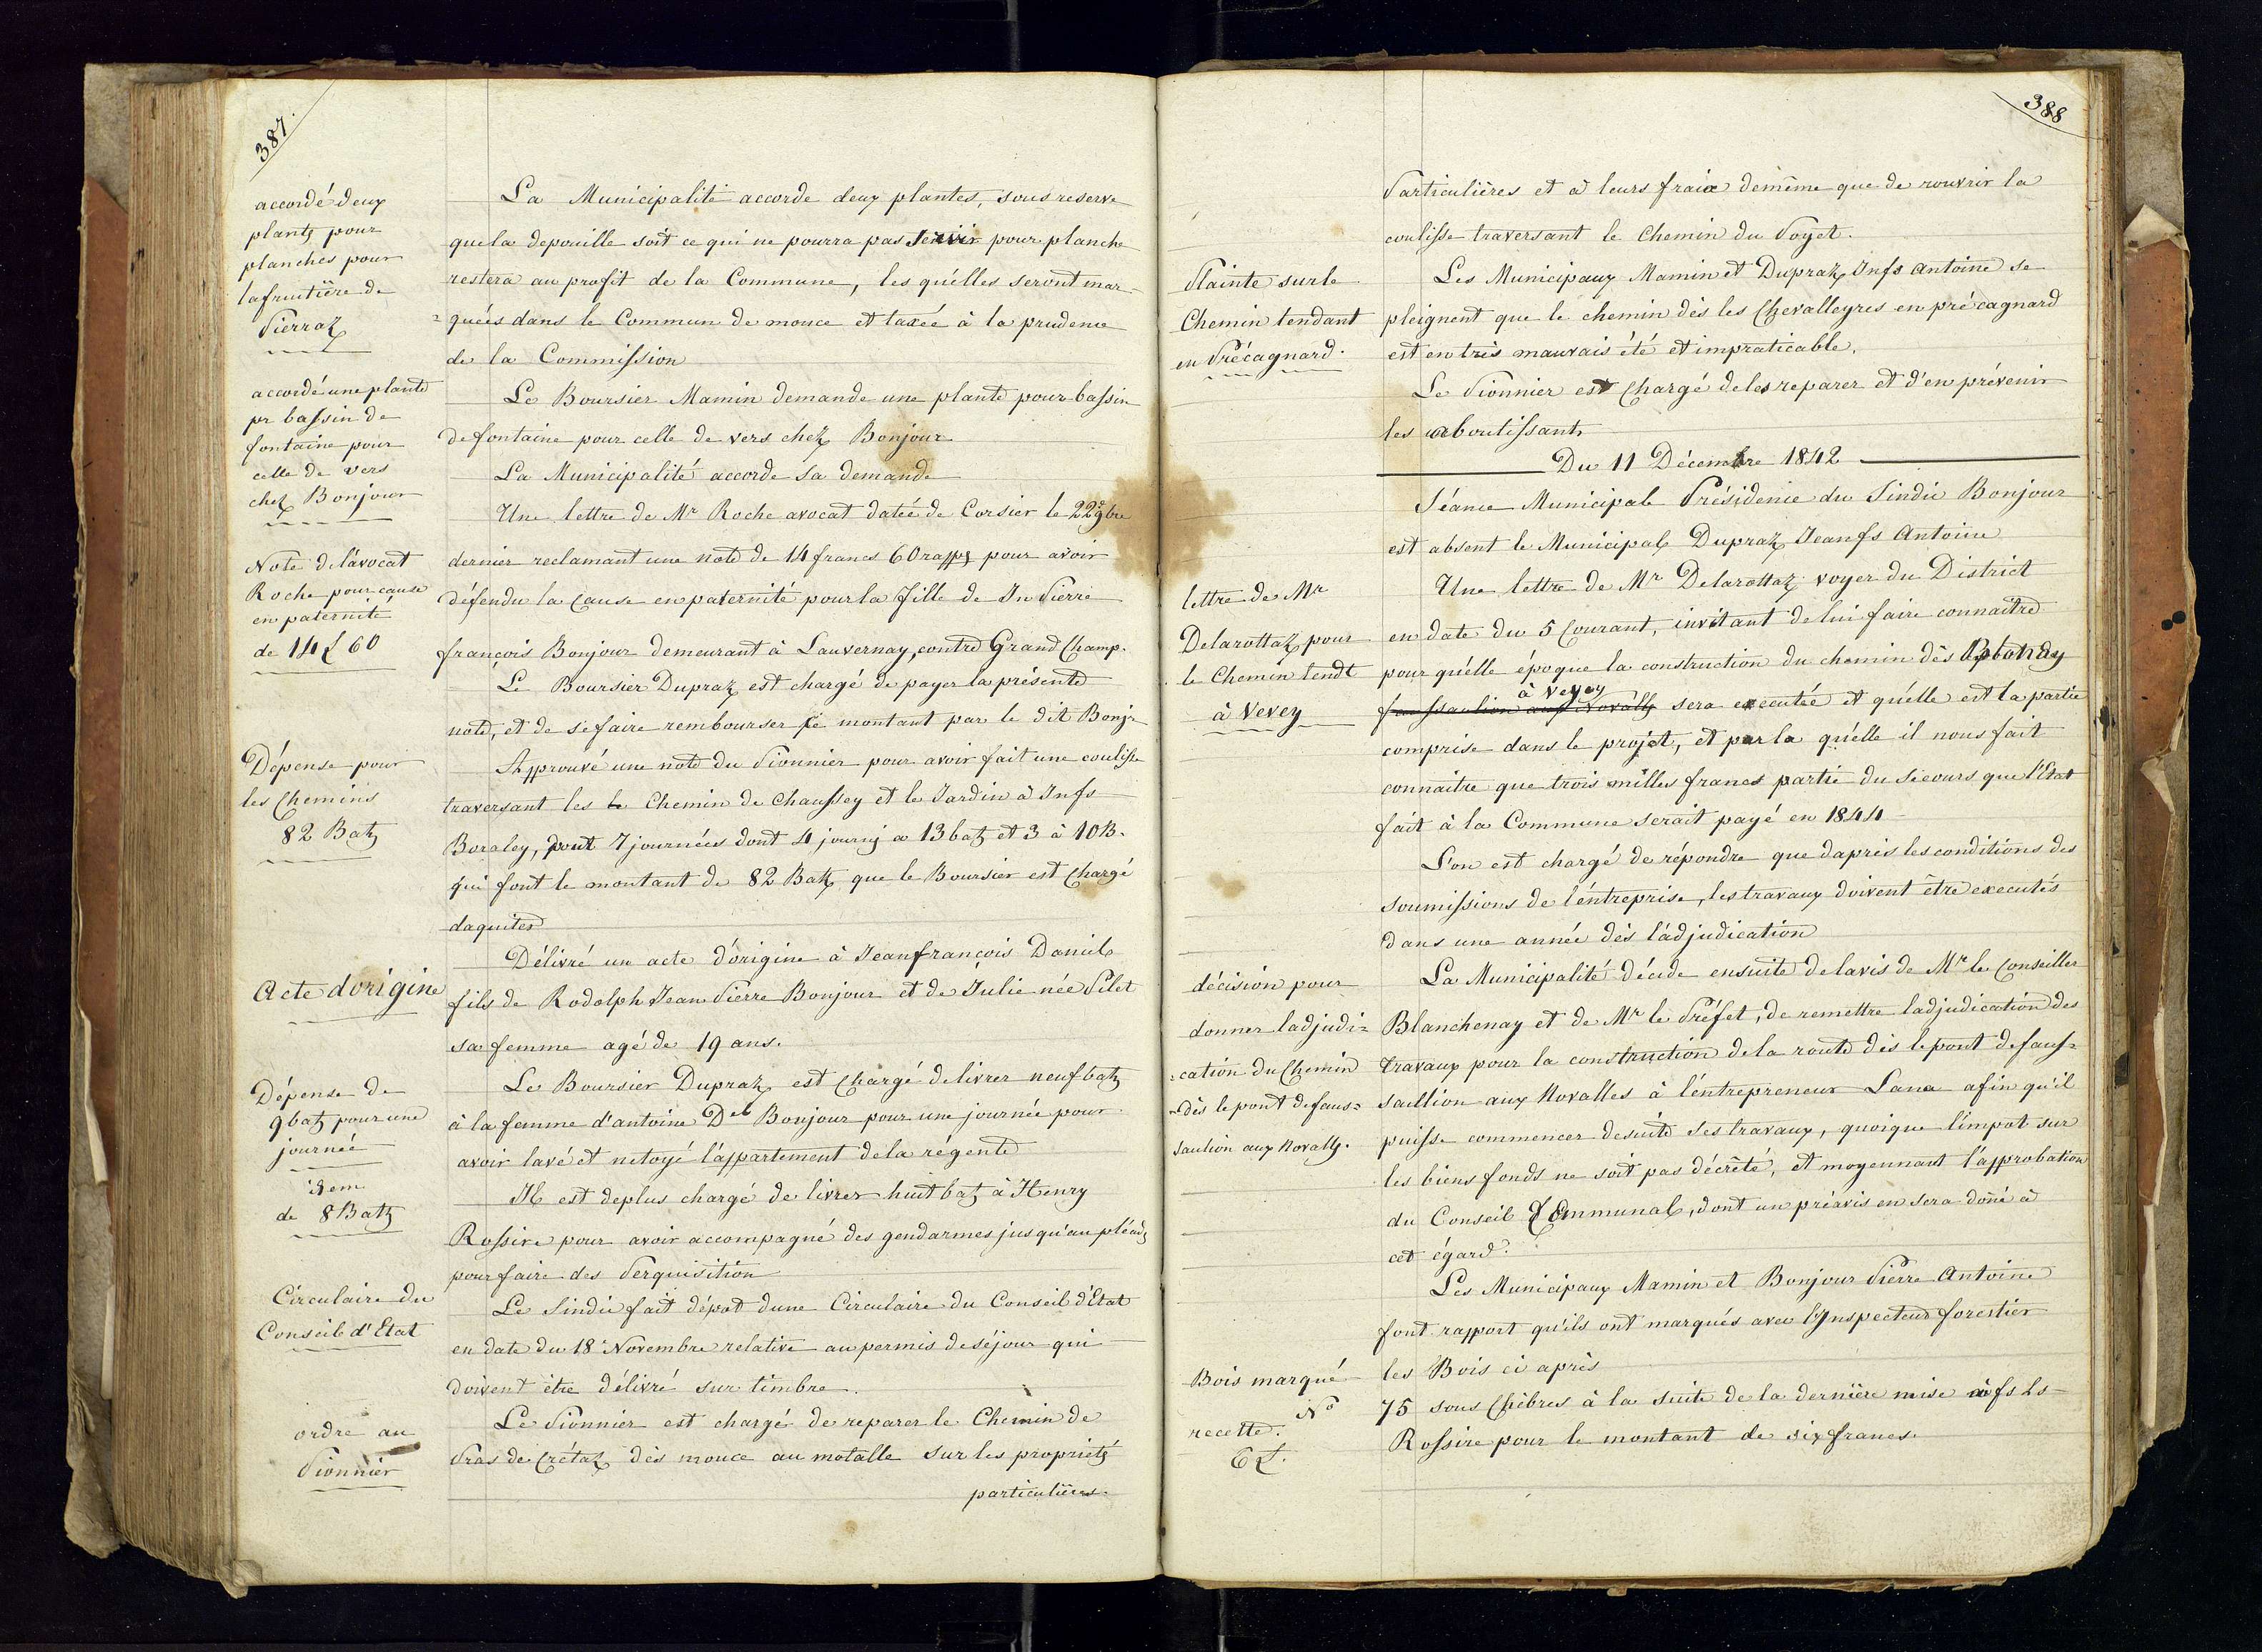 387.
accordé deux
plants pour
planches pour
la fruitière de
Pierraz
La Municipalité accorde deux plantes, sous reserve
que la depouille soit ce qui ne pourra pas servir pour planche
restera au profit de la Commune, les qu'elles seront mar-
=quées dans le Commun de mouce et taxée à la prudence
de la Commission
accordé une plante
pr bassin de
fontaine pour
celle de vers
chez Bonjour
Le Boursier Mamin demande une plante pour bassin
de fontaine pour celle de vers chez Bonjour
La Municipalité accorde sa demande
Note de l'avocat
Roche pour cause
en paternité
de 14 £ 60
Une lettre de Mr Roche avocat datée de Corsier le 22e 9bre
dernier reclamant une note de 14 francs 60 rapps pour avoir
défendu la Cause en paternité pour la fille de Jn Pierre
françois Bonjour demeurant à Lauvernay, contre Grand Champ.
Le Boursier Dupraz est chargé de payer la présente
note, et de se faire rembourser le montant par le dit Bonjr
Dépense pour
les Chemins
82 Batz
Approuvé une note du Pionnier pour avoir fait une coulisse
traversant les le Chemin de Chaussey et le Jardin à Jnfs
Boraley, pour 7 journées dont 4 journj a 13 batz et 3 à 10 B.
qui font le montant de 82 Batz que le Boursier est Chargé
daquiter
Acte d'origine
Délivré un acte d'origine à Jean françois Daniel
fils de Rodolph Jean Pierre Bonjour et de Julie née Pilet
sa femme agé de 19 ans.
Dépense de
9 batz pour une
journée
Le Boursier Dupraz est Chargé de livrer neuf batz
à la femme d'antoine Del Bonjour pour une journée pour
avoir lavé et netoyé l'appartement de la régente
idem
de 8 Batz
Il est deplus chargé de livrer huit batz à Henry
Rossire pour avoir accompagné des gendarmes jusqu'au pléadz
pour faire des Perquisition
Circulaire du
Conseil d'Etat
Le Sindic fait dépot dune Circulaire du Conseil d'Etat
en date du 18 Novembre relative au permis de séjour qui
doivent être délivré sur timbre.
ordre au
Pionnier
Le Pionnier est chargé de reparer le Chemin de
Pras de Crétaz dès mouce au motalle sur les propriétz
particulières.
388
Particulières et à leurs fraix demême que de rouvrir la
coulisse traversant le Chemin du Poyet.
Plainte sur le
Chemin tendant
en Précagnard.
Les Municipaux Mamin et Dupraz Jnfs Antoine se
pleignent que le chemin dès les Chevalleyres en pré cagnard
est en très mauvais été et impraticable.
Le Pionnier est Chargé de les reparer et d'en prévenir
les aboutissants
Du 11 Décembre 1842
Séance Municipale Présidence du Sindic Bonjour
est absent le Municipal Dupraz Jean fs Antoine
lettre de Mr
Delarottaz pour
le Chemin tendt
à Vevey
Une lettre de Mr Delarottaz voyer du District
en date du 5 Courant, invitant de lui faire connaître
pour qu'elle époque la construction du chemin dès Blonay
à Vevey
faussaution aux Novalles sera executée et qu'elle est la partie
comprise dans le projet, et par la qu'elle il nous fait
connaitre que trois milles francs partie du secours que l'Etat
fait à la Commune serait payé en 1844
L'on est chargé de répondre que daprès les conditions des
soumissions de l'entreprise, les travaux doivent être executés
dans une année dès l'adjudication
décision pour
donner ladjudi=
=cation du Chemin
=dès le pont de faus=
saution aux Novalls.
La Municipalité décide ensuite de lavis de Mr le Conseiller
Blanchenay et de Mr le Préfet, de remettre ladjudication des
travaux pour la construction de la route dès le pont de faus=
saillion aux Novalles à l'entrepreneur Lana afin qu'il
puisse commencer desuite ses travaux, quoique l'impot sur
les biens fonds ne soit pas décrèté, et moyennant l'approbation
du Conseil Communal, dont un préavis en sera doñé à
cet égard.
Les Municipaux Mamin et Bonjour Pierre Antoine
font rapport qu'ils ont marqués avec l'Inspecteur forestier
les Bois ci après
Bois marqué
No
recette.
6 £.
75 sous Chèbres à la suite de la dernière mise à fs Ls
Rossire pour le montant de six francs.